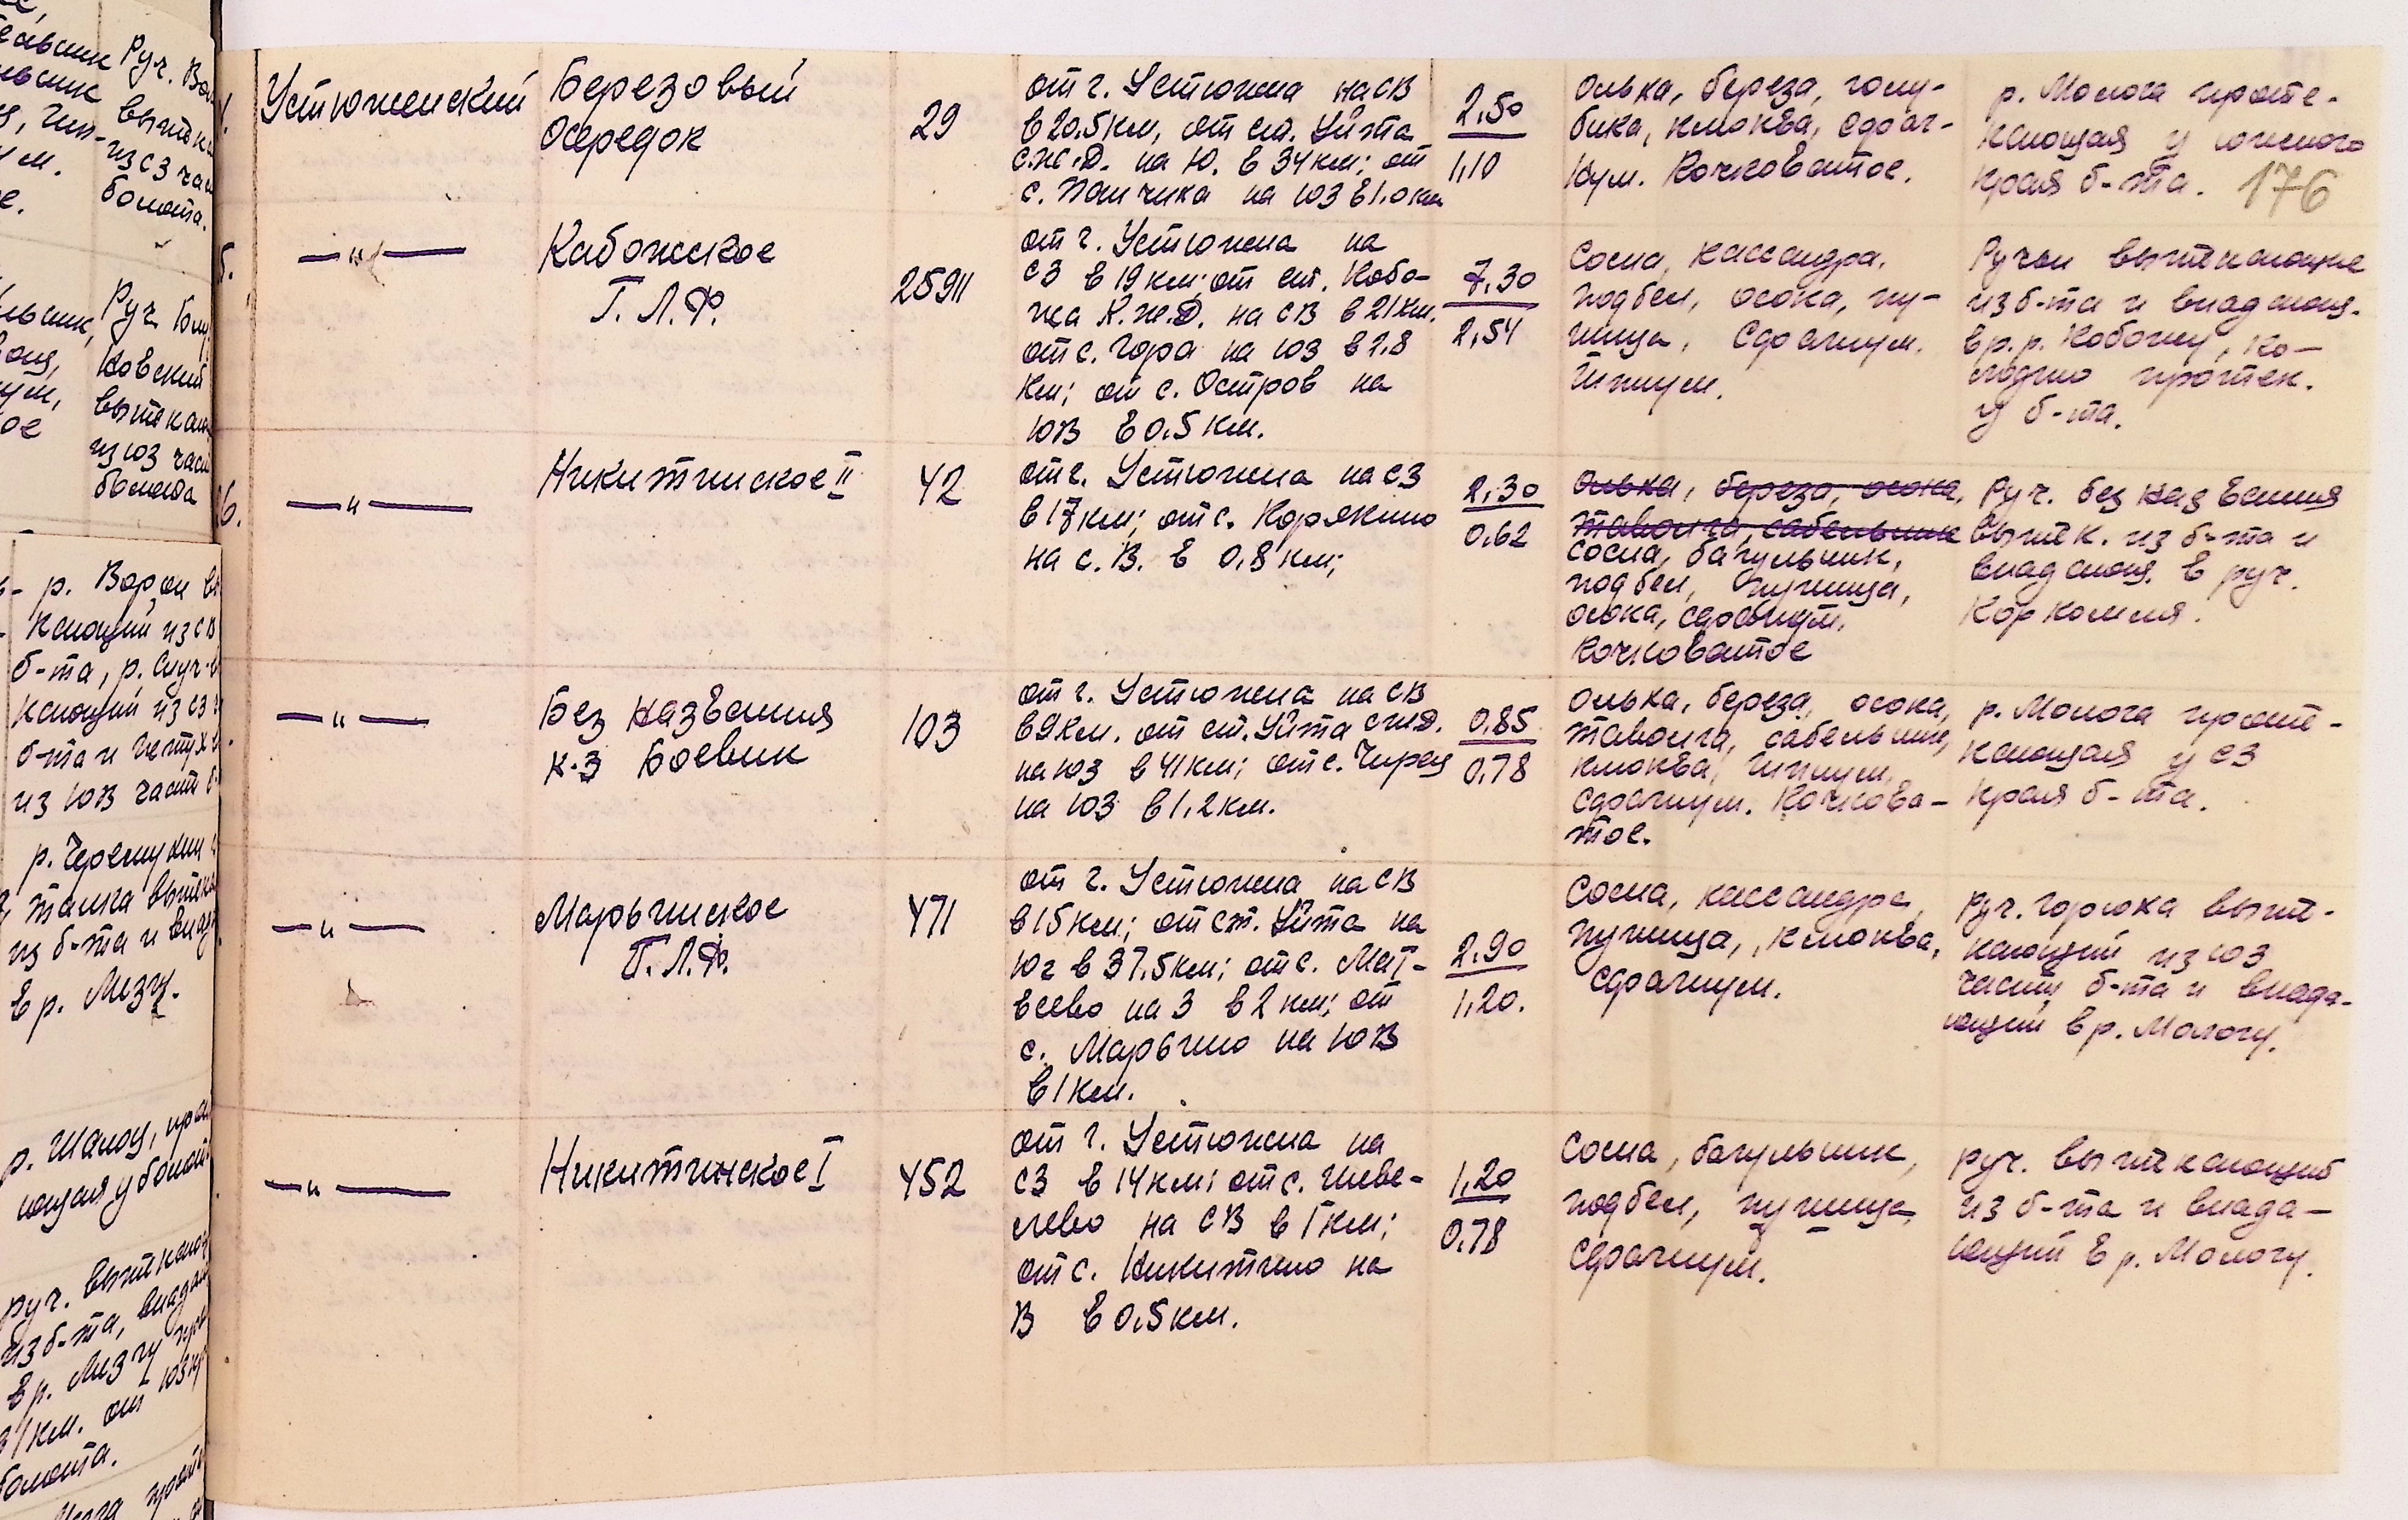 Устюженский
Березовый
Осередок
29
от г. Устюжна на СВ
в 20.5 км, от ст. Уйта
С.Ж.Д. на Ю. в 34 км; от
с. на ЮЗ в 1.0 км
2,50
1,10
Ольха, береза, голу-
бика, клюква, сфаг-
нум. Кочковатое.
р. Молога проте-
кающая у южного
края б-та. 176
5.
—"—
Кабожское
Г. Л. Ф.
25911
от г. Устюжна на
СЗ в 19 км; от ст. Кабо-
жа К.Ж.Д. на СВ в 21 км.
от с. Гора на ЮЗ в 2.8
км; от с. Остров на
ЮВ в 0.5 км.
7,30
2,54
Сосна, кассандра,
подбел, осока, пу-
шица, сфагнум.
Гипнум.
Ручьи вытекающие
из б-та и впадающ.
в р.р. Кобожу, Ко-
лодню протек.
у б-та.
6.
—"—
Никитинское II
42
от г. Устюжна на СЗ
в 17 км; от с. Корякино
на С. В. в 0,8 км;
2,30
0,62
Ольха, береза, осока,
таволга, сабельник
сосна, багульник,
подбел, пушица,
осока, сфагнум.
Кочковатое
Руч. без названия
вытек. из б-та и
впадающ. в руч.
—"—
Без названия
к-з Боевик
103
от г. Устюжна на СВ
в 9 км. от ст. Уйта СЖД.
на ЮЗ в 41 км; от с. Чирец
на ЮЗ в 1,2 км.
0,85
0,78
Ольха, береза, осока,
таволга, сабельник,
клюква, гипнум,
сфагнум. Кочкова-
тое.
р. Молога проте-
кающая у СЗ
края б-та.
—"—
Марьинское
Г. Л. Ф.
471
от г. Устюжна на СВ
в 15 км; от ст. Уйта на
Юг в 37.5 км; от с. Мат-
веево на З в 2 км; от
с. Марьино на ЮВ
в 1 км.
2,90
1,20.
Сосна, кассандра,
пушица, клюква,
сфагнум.
Руч. Горюха выте-
кающий из ЮЗ
части б-та и впада-
ющий в р. Мологу.
—"—
Никитинское I
452
от г. Устюжна на
СЗ в 14 км; от с. Шеве-
лево на СВ в 1 км;
от с. Никитино на
В в 0.5 км.
1,20
0,78
Сосна, багульник,
подбел, пушица,
сфагнум.
руч. вытекающий
из б-та и впада-
ющий в р. Мологу.